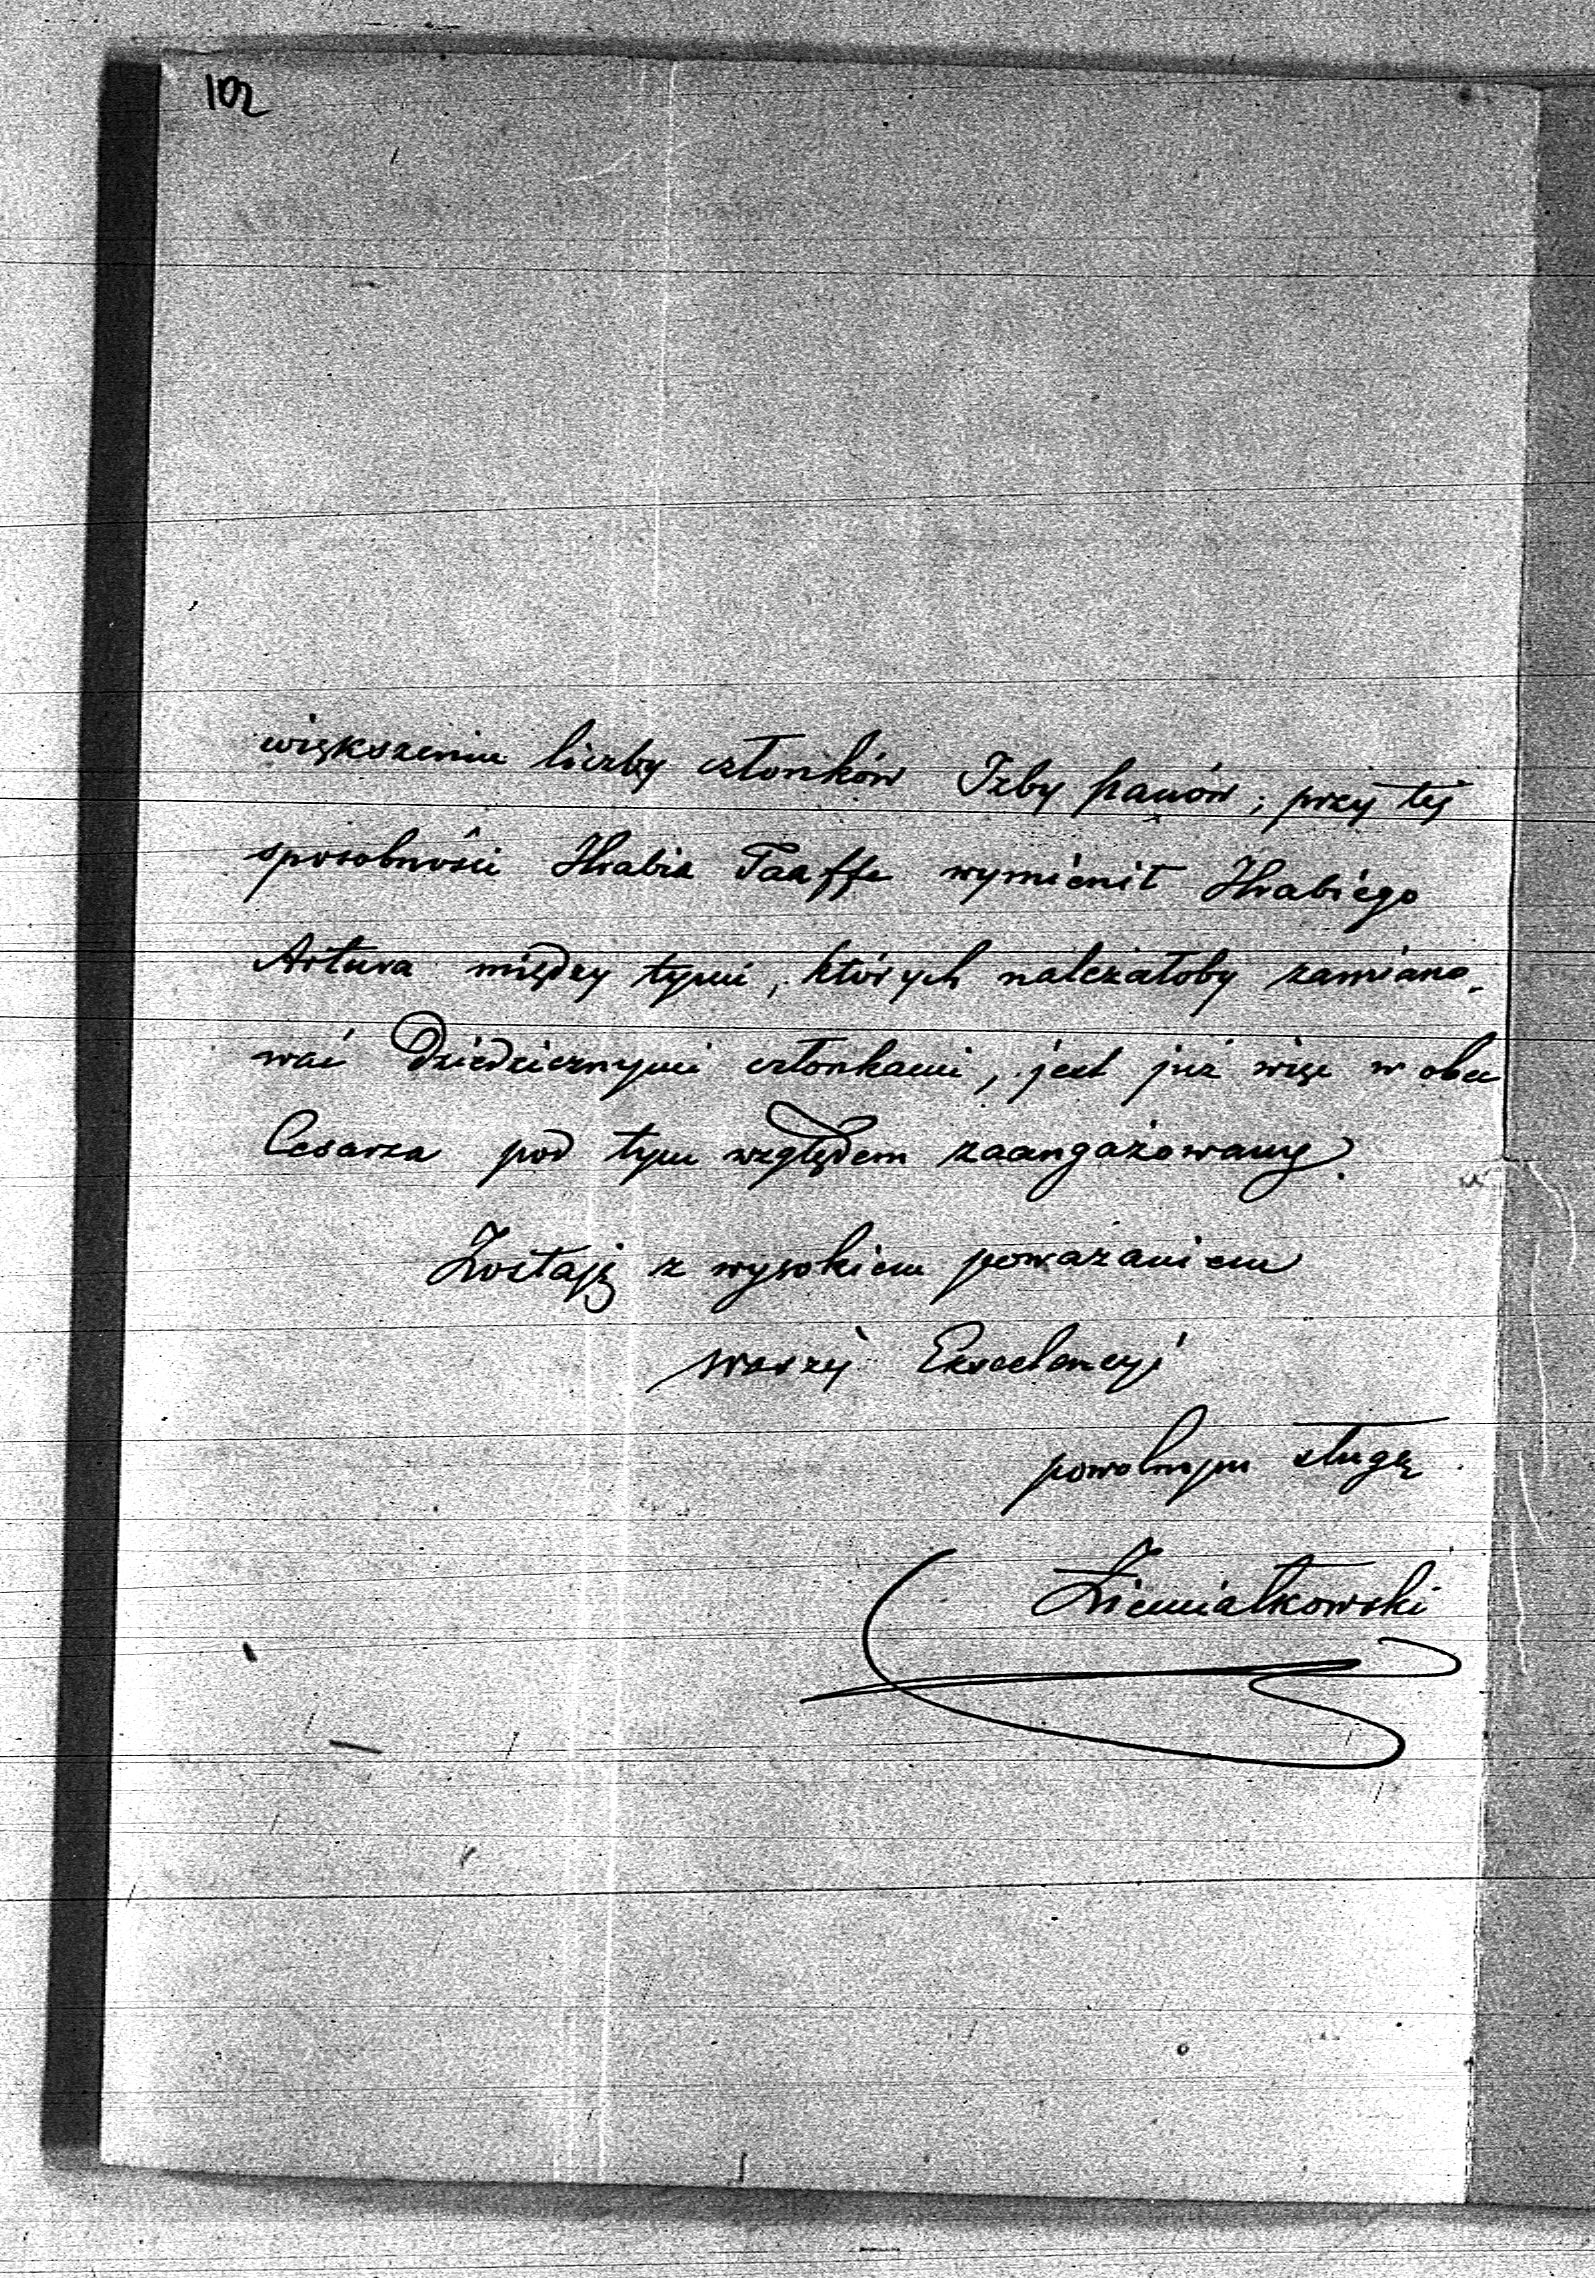 102
większeniu liczby członków Izby panów; przy tej
sposobności Hrabia Taaffe wymienił Hrabiego
Artura między tymi, których należałoby zamiano-
wać Dziedzicznymi członkami, jest już więc w obec
Cesarza pod tym względem zaangażowany.
Zostaję z wysokiem poważaniem
waszej Excelencyi
powolnym sługą
Ziemiałkowski